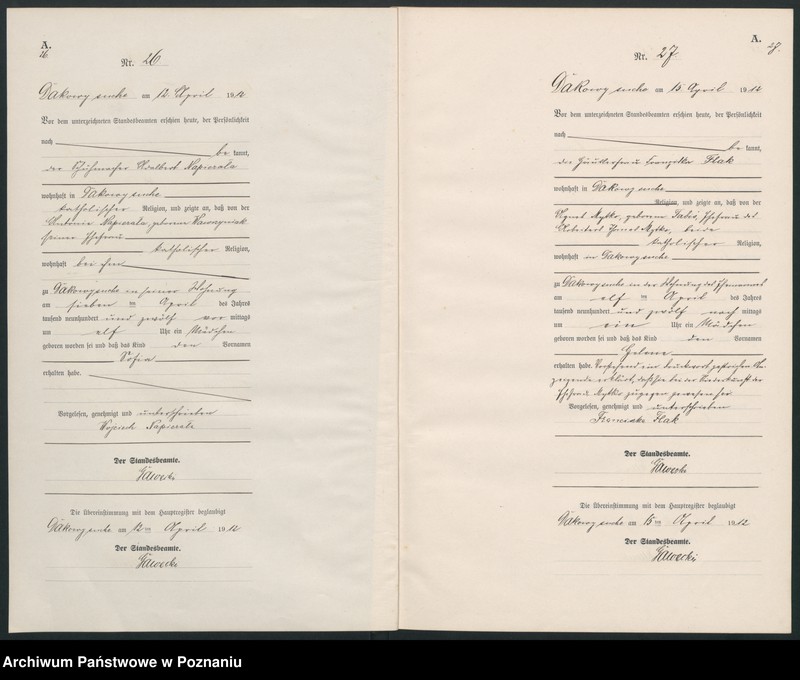 A.
26
Nr. 26
Dakowy suche am 12. April 1912
Vor dem unterzeichneten Standesbeamten erschien heute, der Persönlichkeit
nach
be kannt,
der Schuhmacher Adalbert Napierala
wohnhaft in Dakowy suche
katholischer Religion, und zeigte an, daß von der
Antonie Napierala, geborenen Wawrzyniak
seiner Ehefrau
katholischer Religion,
wohnhaft bei ihm
zu Dakowy suche in seiner Wohnung
am sieben ten April des Jahres
tausend neunhundert und zwölf vor mittags
um elf Uhr ein Mädchen
geboren worden sei und daß das Kind den Vornamen
Sofia
erhalten habe.
Vorgelesen, genehmigt und unterschrieben
Wojciech Napierala
Der Standesbeamte.
Gawecki
Die Übereinstimmung mit dem Hauptregister beglaubigt
Dakowy suche am 12 ten April 1912
Der Standesbeamte.
Gawecki
A.
27.
Nr. 27
Dakowy suche am 15 April 1912
Vor dem unterzeichneten Standesbeamten erschien heute, der Persönlichkeit
nach
be kannt,
die Flak
wohnhaft in Dakowy suche
Religion, und zeigte an, daß von der
Agnes Mytko, geborenen Ehefrau des
Arbeiters Mytko, beide
katholischer Religion,
wohnhaft in Dakowy suche
zu Dakowy suche in der Wohnung des Ehemannes
am elf ten April des Jahres
tausend neunhundert und zwölf nach mittags
um ein Uhr ein Mädchen
geboren worden sei und daß das Kind den Vornamen
Helene
erhalten habe. Vorstehend ein Druckwort gestrichen. An-
zeigende erklärt, daß sie bei der Niederkunft der
Ehefrau Mytko zugegen gewesen sei
Vorgelesen, genehmigt und unterschrieben
Flak
Der Standesbeamte.
Gawecki
Die Übereinstimmung mit dem Hauptregister beglaubigt
Dakowy suche am 15 ten April 1912
Der Standesbeamte.
Gawecki
Archiwum Państwowe w Poznaniu